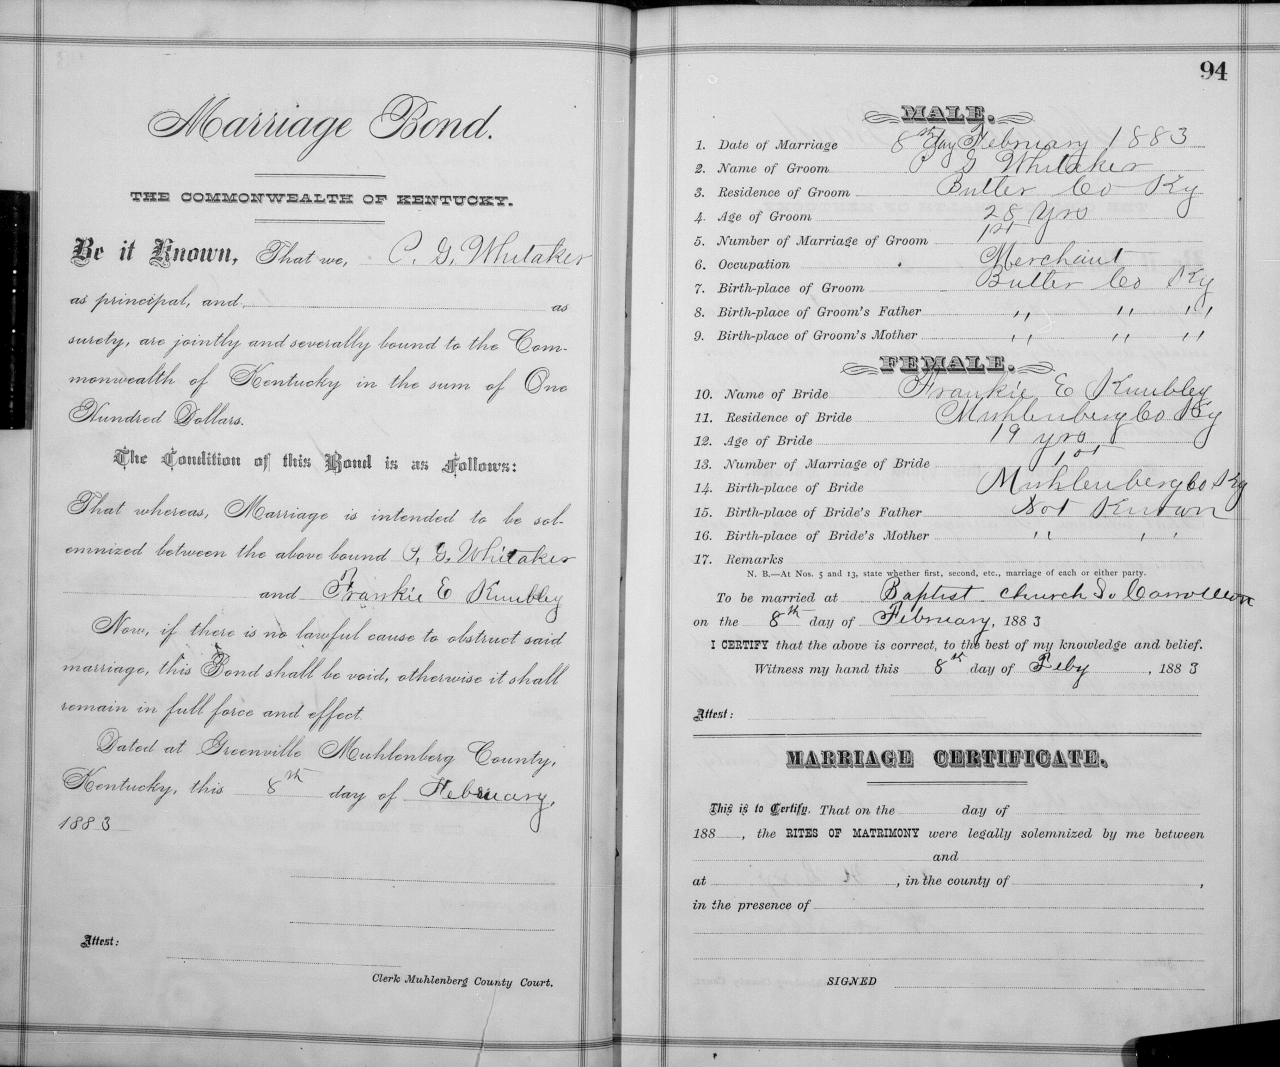 Marriage Bond.
THE COMMONWEALTH OF KENTUCKY.
Be it Known, That we, P. G. Whitaker
as principal, and as
surety, are jointly and severally bound to the Com-
monwealth of Kentucky in the sum of One
Hundred Dollars.
The Condition of this Bond is as Follows:
That whereas, Marriage is intended to be sol-
emnized between the above bound P. G. Whitaker
and Frankie E Kimbley
Now, if there is no lawful cause to obstruct said
marriage, this Bond shall be void, otherwise it shall
remain in full force and effect.
Dated at Greenville Muhlenberg County,
Kentucky, this 8th day of February,
1883
Attest:
Clerk Muhlenberg County Court.
94
MALE.
1. Date of Marriage 8th day February 1883
2. Name of Groom P G Whitaker
3. Residence of Groom Butler Co Ky
4. Age of Groom 28 yrs
5. Number of Marriage of Groom 1st
6. Occupation Merchant
7. Birth-place of Groom Butler Co Ky
8. Birth-place of Groom's Father " " "
9. Birth-place of Groom's Mother " " "
FEMALE.
10. Name of Bride Frankie E Kimbley
11. Residence of Bride Muhlenberg Co Ky
12. Age of Bride 19 yrs
13. Number of Marriage of Bride 1st
14. Birth-place of Bride Muhlenberg Co Ky
15. Birth-place of Bride's Father Not Known
16. Birth-place of Bride's Mother " "
17. Remarks
N. B.—At Nos. 5 and 13, state whether first, second, etc., marriage of each or either party.
To be married at Baptist Church So Carrollton
on the 8th day of February, 1883
I CERTIFY that the above is correct, to the best of my knowledge and belief.
Witness my hand this 8th day of Feby, 1883
Attest:
MARRIAGE CERTIFICATE.
This is to Certify, That on the day of
188 , the RITES OF MATRIMONY were legally solemnized by me between
and
at , in the county of ,
in the presence of
SIGNED